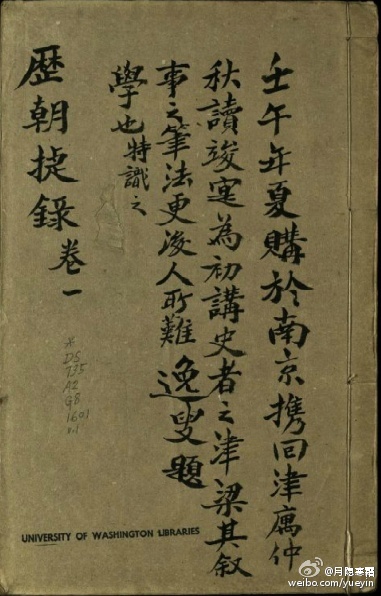 壬午年夏購於南京携回津庽仲
秋讀竣寔為初講史者之津梁其叙
事之筆法更後人所難
學也特識之
逸叟題
歷朝捷錄卷一
DS
735
A2
G8
1601
v.1
UNIVERSITY OF WASHINGTON LIBRARIES
@月隐寒霜
weibo.com/yueyin